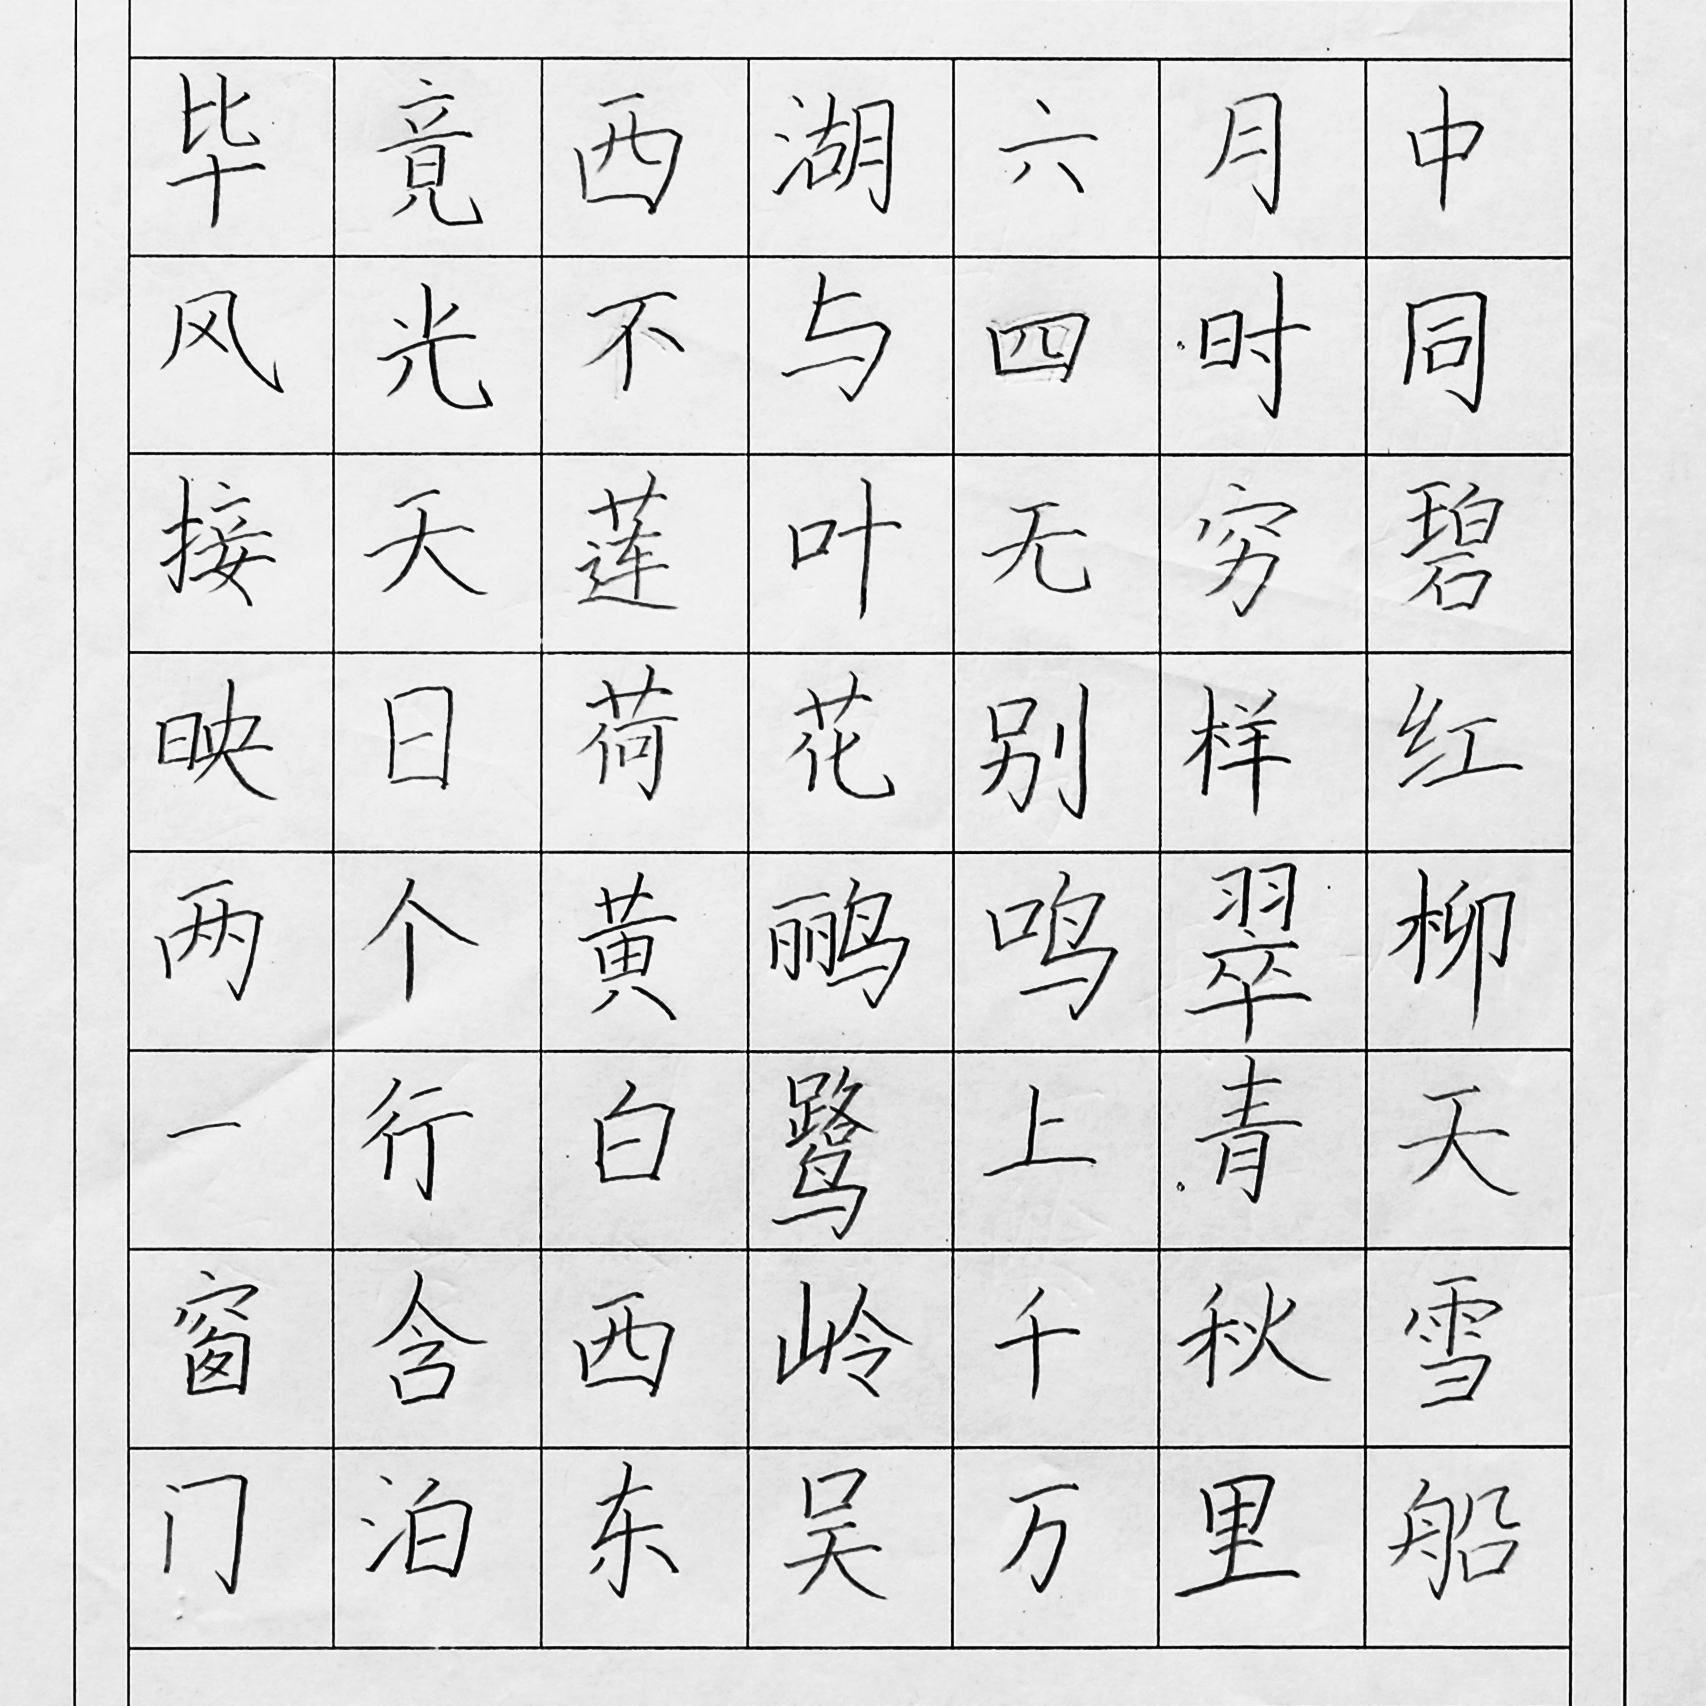 毕竟西湖六月中
风光不与四时同
接天莲叶无穷碧
映日荷花别样红
两个黄鹂鸣翠柳
一行白鹭上青天
窗含西岭千秋雪
门泊东吴万里船